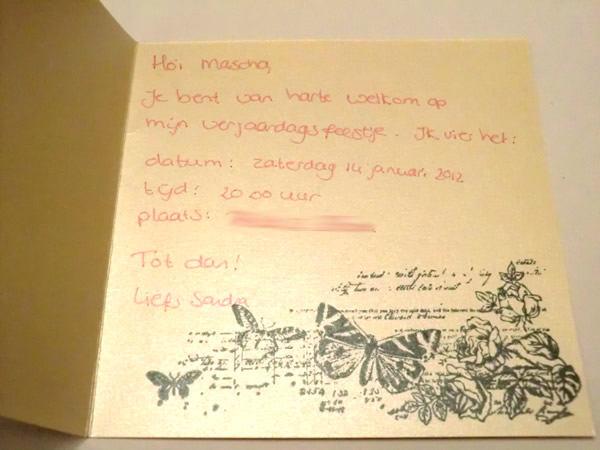 Hoi Mascha,
Je bent van harte welkom op
mijn verjaardagsfeestje. Ik vier het:
datum: zaterdag 14 januari 2012
tijd: 20.00 uur
plaats:
Tot dan!
Liefs Sandra